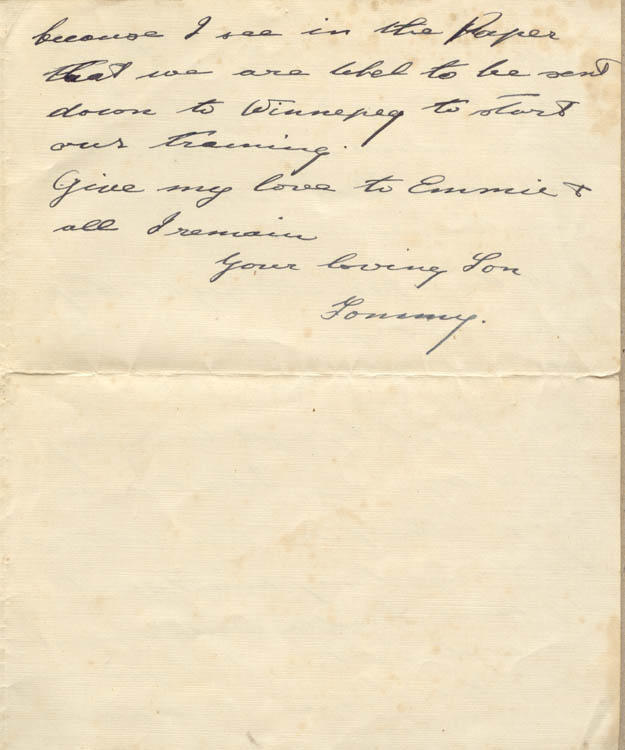 because I see in the Paper
that we are libel to be sent
down to Winnepeg to start
our training.
Give my love to Emmie &
all I remain
Your loving Son
Tommy.